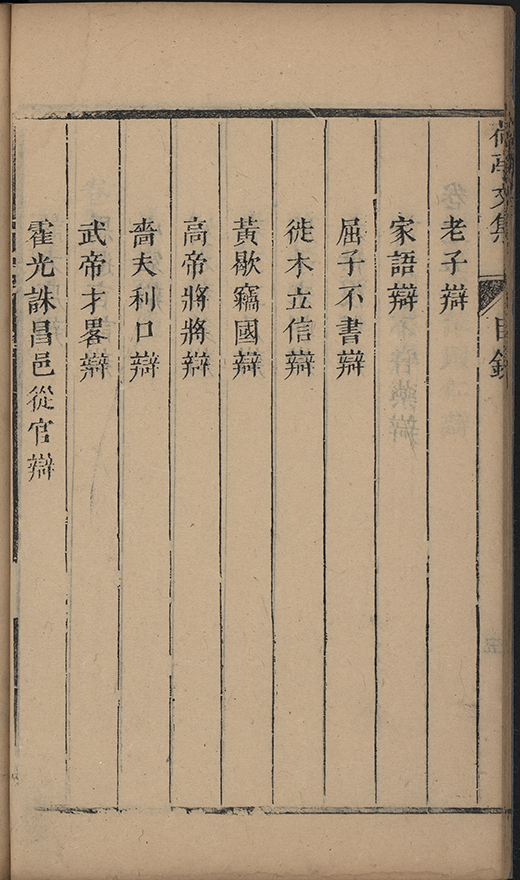 老子辯
家語辯
屈子不書辯
徙木立信辯
黃歇竊國辯
高帝將將辯
嗇夫利口辯
武帝才畧辯
霍光誅昌邑從官辯
文集
目錄